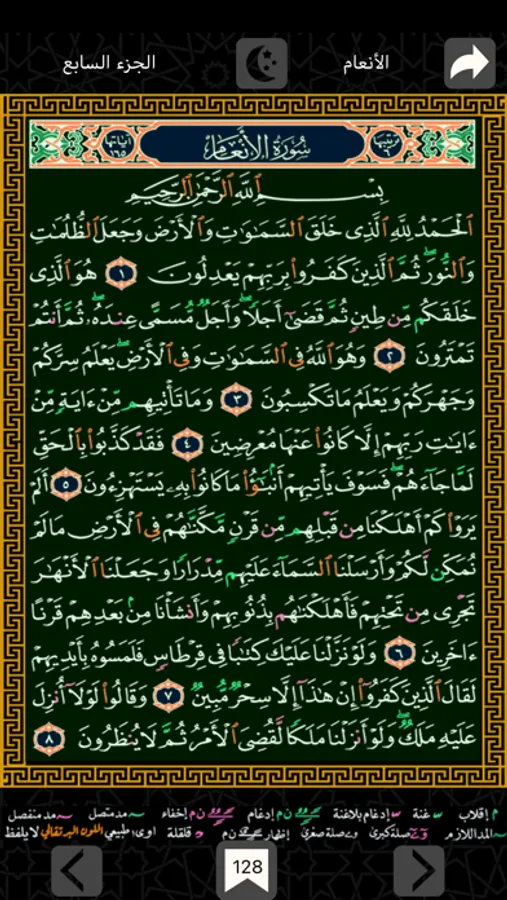 الأنعام الجزء السابع
ترتيبها ٦ سُورَةُ الأَنْعَامِ آياتها ١٦٥
بِسْمِ ٱللَّهِ ٱلرَّحْمَٰنِ ٱلرَّحِيمِ
ٱلْحَمْدُ لِلَّهِ ٱلَّذِى خَلَقَ ٱلسَّمَٰوَٰتِ وَٱلْأَرْضَ وَجَعَلَ ٱلظُّلُمَٰتِ
وَٱلنُّورَ ۖ ثُمَّ ٱلَّذِينَ كَفَرُوا۟ بِرَبِّهِمْ يَعْدِلُونَ ١ هُوَ ٱلَّذِى
خَلَقَكُم مِّن طِينٍ ثُمَّ قَضَىٰٓ أَجَلًا ۖ وَأَجَلٌ مُّسَمًّى عِندَهُۥ ۖ ثُمَّ أَنتُمْ
تَمْتَرُونَ ٢ وَهُوَ ٱللَّهُ فِى ٱلسَّمَٰوَٰتِ وَفِى ٱلْأَرْضِ ۖ يَعْلَمُ سِرَّكُمْ
وَجَهْرَكُمْ وَيَعْلَمُ مَا تَكْسِبُونَ ٣ وَمَا تَأْتِيهِم مِّنْ ءَايَةٍ مِّنْ
ءَايَٰتِ رَبِّهِمْ إِلَّا كَانُوا۟ عَنْهَا مُعْرِضِينَ ٤ فَقَدْ كَذَّبُوا۟ بِٱلْحَقِّ
لَمَّا جَآءَهُمْ ۖ فَسَوْفَ يَأْتِيهِمْ أَنۢبَٰٓؤُا۟ مَا كَانُوا۟ بِهِۦ يَسْتَهْزِءُونَ ٥ أَلَمْ
يَرَوْا۟ كَمْ أَهْلَكْنَا مِن قَبْلِهِم مِّن قَرْنٍ مَّكَّنَّٰهُمْ فِى ٱلْأَرْضِ مَا لَمْ
نُمَكِّن لَّكُمْ وَأَرْسَلْنَا ٱلسَّمَآءَ عَلَيْهِم مِّدْرَارًا وَجَعَلْنَا ٱلْأَنْهَٰرَ
تَجْرِى مِن تَحْتِهِمْ فَأَهْلَكْنَٰهُم بِذُنُوبِهِمْ وَأَنشَأْنَا مِنۢ بَعْدِهِمْ قَرْنًا
ءَاخَرِينَ ٦ وَلَوْ نَزَّلْنَا عَلَيْكَ كِتَٰبًا فِى قِرْطَاسٍ فَلَمَسُوهُ بِأَيْدِيهِمْ
لَقَالَ ٱلَّذِينَ كَفَرُوٓا۟ إِنْ هَٰذَآ إِلَّا سِحْرٌ مُّبِينٌ ٧ وَقَالُوا۟ لَوْلَآ أُنزِلَ
عَلَيْهِ مَلَكٌ ۖ وَلَوْ أَنزَلْنَا مَلَكًا لَّقُضِىَ ٱلْأَمْرُ ثُمَّ لَا يُنظَرُونَ ٨
م إقلاب غنة إدغام بلاغنة ن م إدغام ن م إخفاء مد متصل مد منفصل
المد اللازم صلة كبرى صلة صغرى إظهار ن م قلقلة اوى: طبيعي اللون البرتقالي لا يلفظ
128